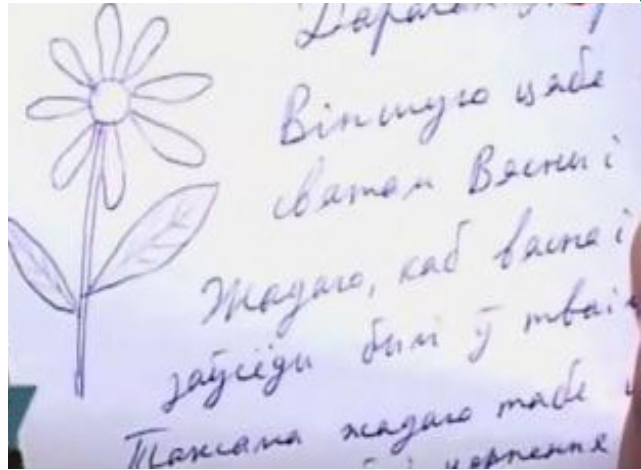 Дарагая
Віншую цябе
святам Вясны і
Жадаю, каб вясна і
заўсёды былі ў тваім
Таксама жадаю табе
і цярпення